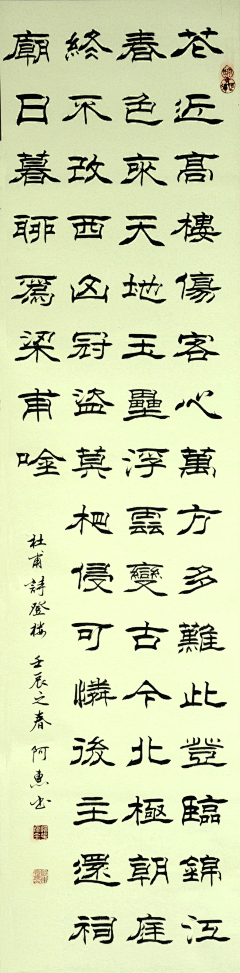 花近高樓傷客心萬方多難此登臨錦江
春色來天地玉壘浮雲變古今北極朝庭
終不改西山寇盜莫相侵可憐後主還祠
廟日暮聊爲梁甫唫
杜甫詩登樓 壬辰之春 阿惠書